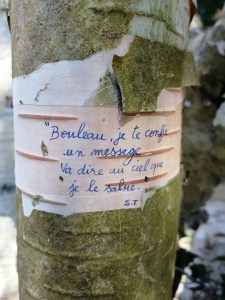 "Bouleau, je te confie
un message
Va dire au ciel que
je le salue."
S.T